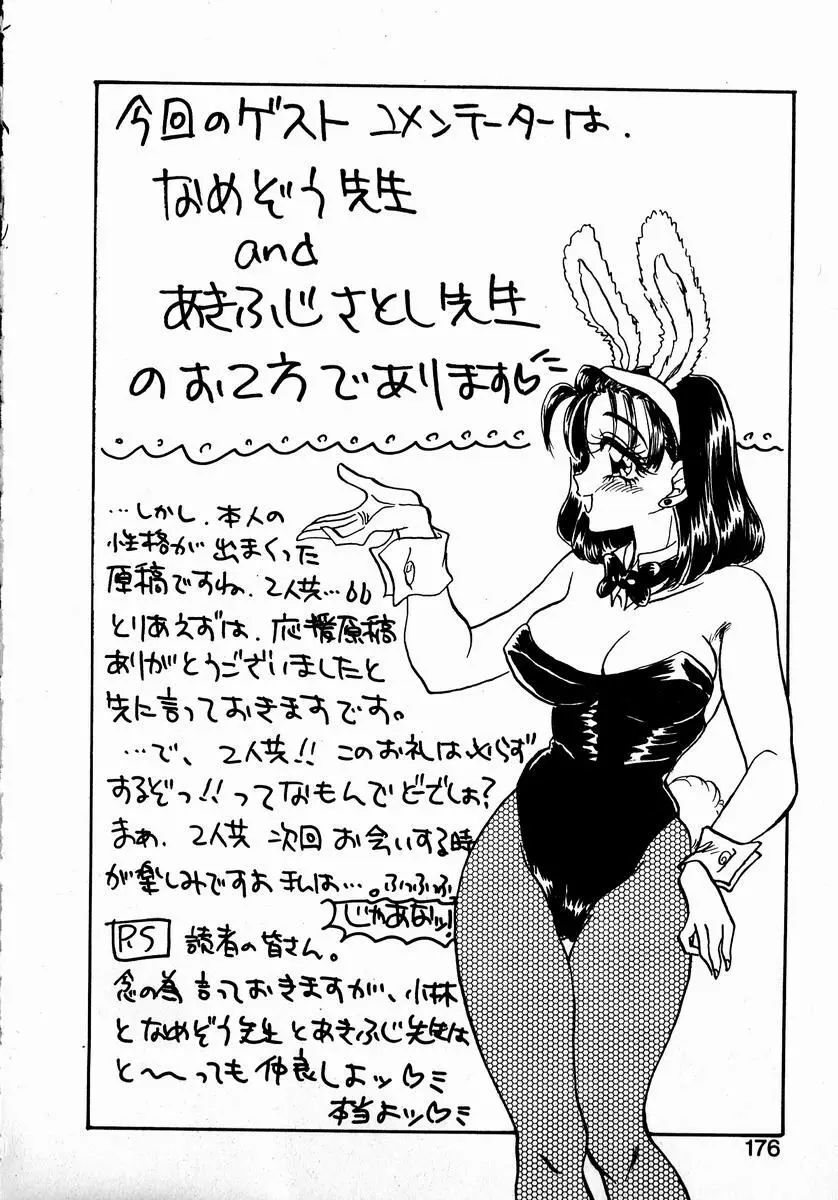 今回のゲスト コメンテーターは、
なめぞう先生
and
あきふじさとし先生
のお2方であります♡
…しかし、本人の
性格が出まくった
原稿ですね、2人共…。
とりあえずは、応援原稿
ありがとうございましたと
先に言っておきますです。
…で、2人共!! このお礼は必らず
するぞっ!! ってなもんでどでしょ?
まぁ、2人共 次回お会いする時
が楽しみですね 私は…。ふっふふ
じゃあなッ!
P.S 読者の皆さん。
念の為言っておきますが、小林
となめぞう先生とあきふじ先生は
と〜〜っても仲良しよッ♡
本当よッ♡
176